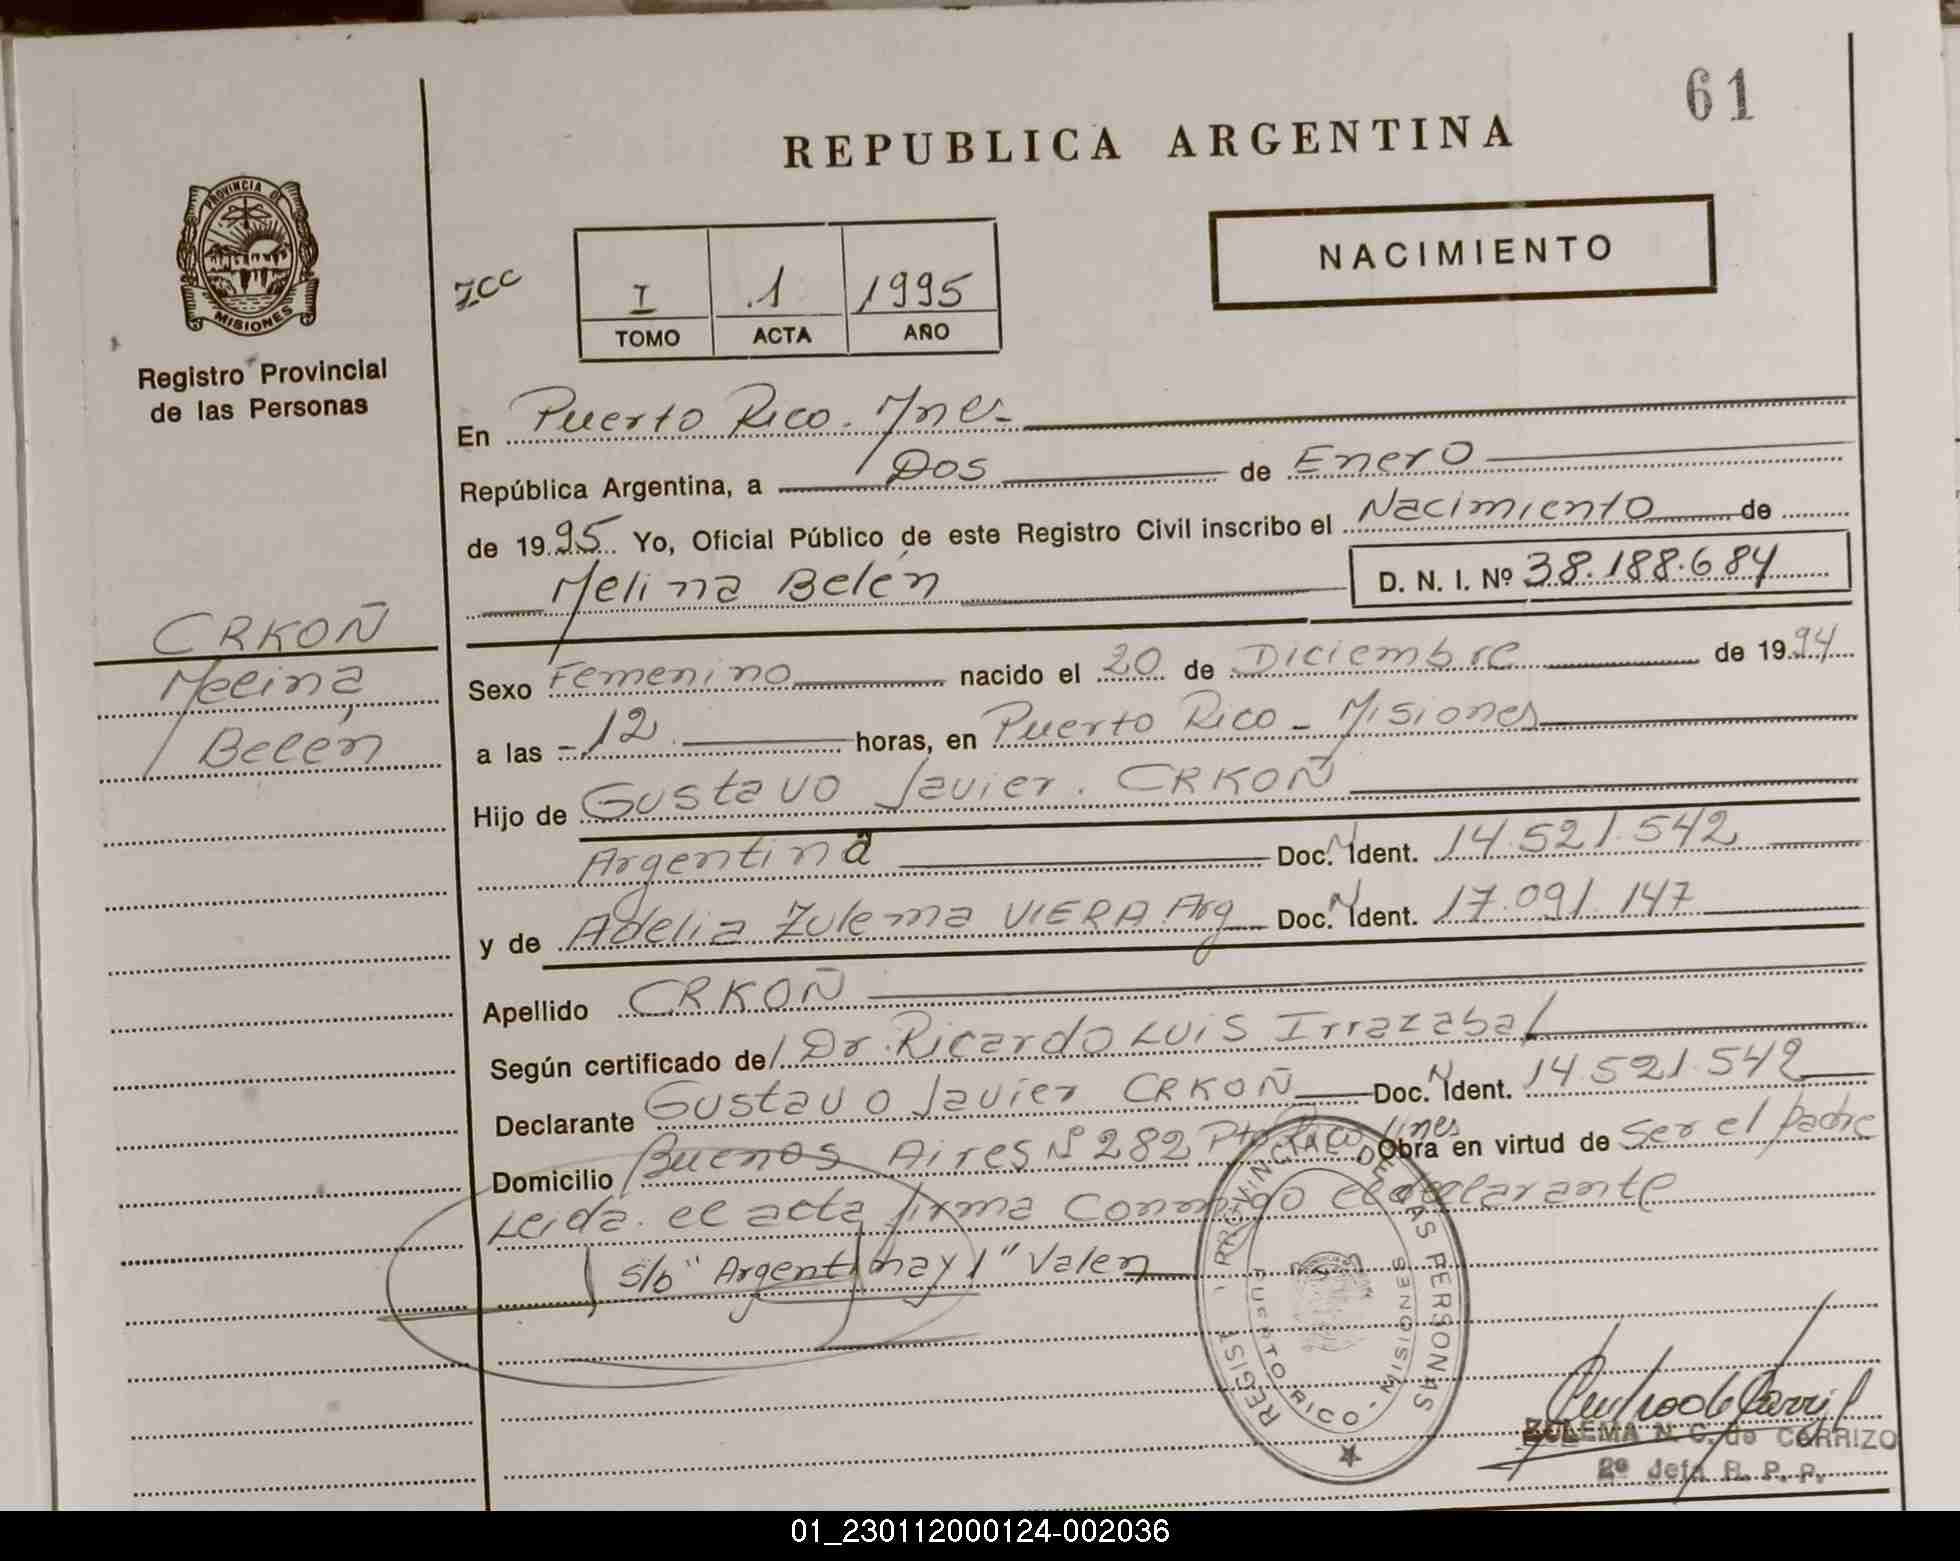 61
REPUBLICA ARGENTINA
PROVINCIA DE
MISIONES
Registro Provincial
de las Personas
ZCC
I 1 1995
TOMO ACTA AÑO
NACIMIENTO
En Puerto Rico. Mnes
República Argentina, a Dos de Enero
de 1995 Yo, Oficial Público de este Registro Civil inscribo el Nacimiento de
Melina Belén D. N. I. Nº 38.188.684
CRKOÑ
Melina
Belén
Sexo Femenino nacido el 20 de Diciembre de 1994
a las 12 horas, en Puerto Rico - Misiones
Hijo de Gustavo Javier. CRKOÑ
Argentina Doc. N Ident. 14.521.542
y de Adelia Zulema VIERA Arg Doc. N Ident. 17.091.147
Apellido CRKOÑ
Según certificado del Dr. Ricardo Luis Irrazabal
Declarante Gustavo Javier CRKOÑ Doc. N Ident. 14.521.542
Domicilio Buenos Aires Nº 282 Pto Rico Mnes Obra en virtud de Ser el padre
Leida el acta firma Conmigo el declarante
s/b "Argentina y l" Valen
REGIST PROVINCIAL DE LAS PERSONAS
PUERTO RICO - MISIONES
ZULEMA N. C. de CARRIZO
2º Jefa R. P. P.
01_230112000124-002036